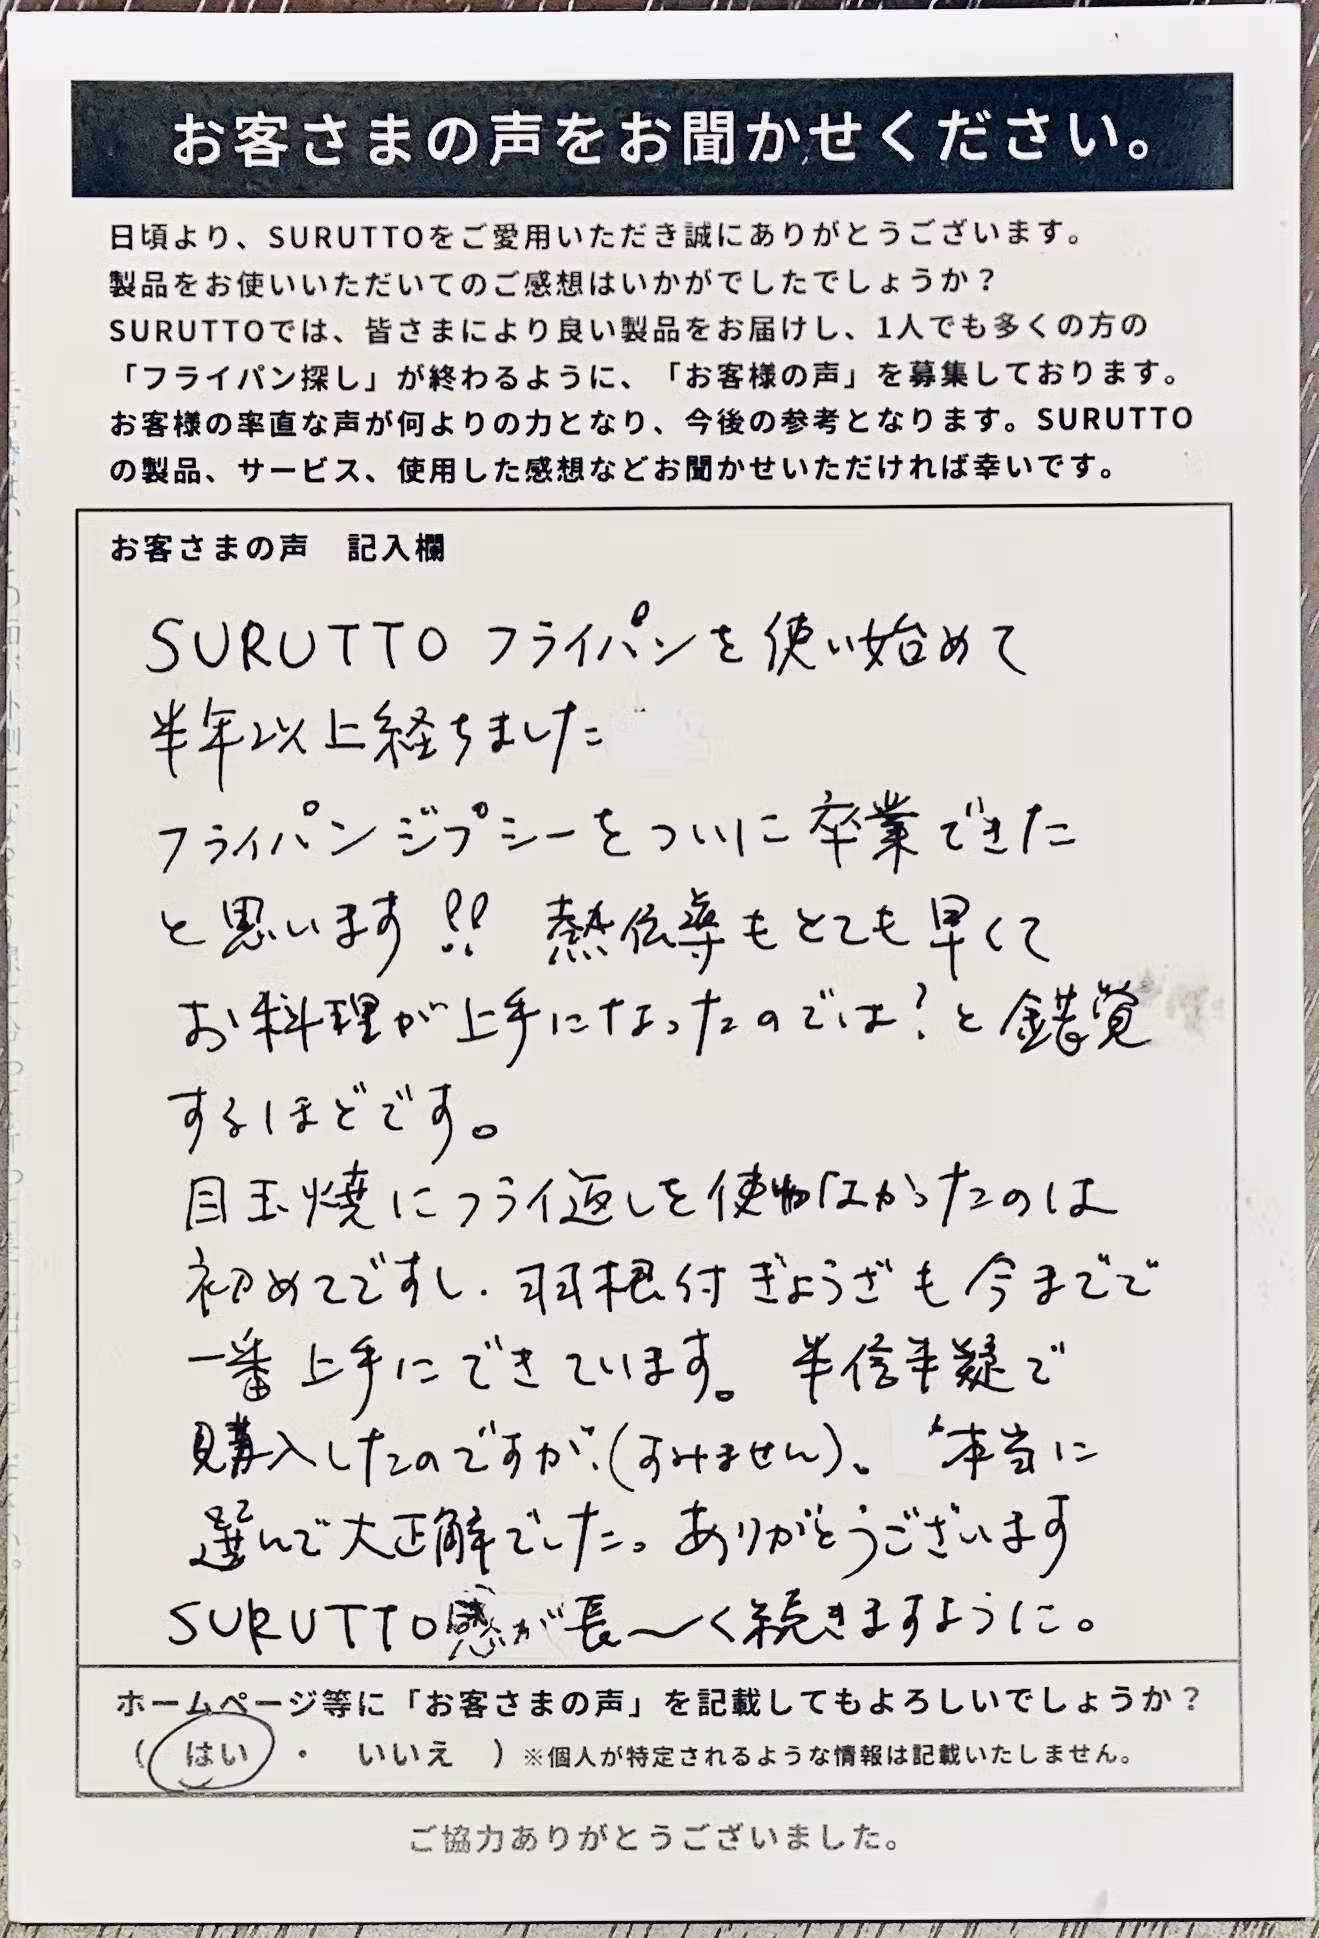 お客さまの声をお聞かせください。
日頃より、SURUTTOをご愛用いただき誠にありがとうございます。
製品をお使いいただいてのご感想はいかがでしたでしょうか?
SURUTTOでは、皆さまにより良い製品をお届けし、1人でも多くの方の
「フライパン探し」が終わるように、「お客様の声」を募集しております。
お客様の率直な声が何よりの力となり、今後の参考となります。SURUTTO
の製品、サービス、使用した感想などお聞かせいただければ幸いです。
お客さまの声 記入欄
SURUTTO フライパンを使い始めて
半年以上経ちました
フライパンジプシーをついに卒業できた
と思います!! 熱伝導もとても早くて
お料理が上手になったのでは?と錯覚
するほどです。
目玉焼にフライ返しを使わなかったのは
初めてですし、羽根付ぎょうざも今までで
一番上手にできています。半信半疑で
購入したのですが、(すみません)、本当に
選んで大正解でした。ありがとうございます
SURUTTO感が長〜く続きますように。
ホームページ等に「お客さまの声」を記載してもよろしいでしょうか?
( はい ・ いいえ )※個人が特定されるような情報は記載いたしません。
ご協力ありがとうございました。